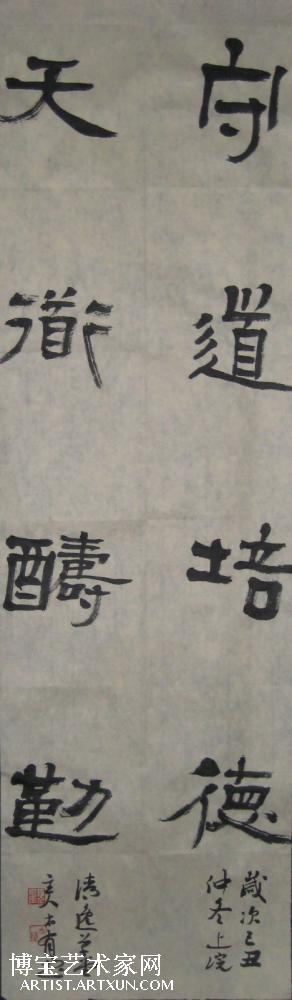 守道培德
歲次己丑
仲冬上浣
天衜酬勤
清逸草堂
博宝艺术家网
ARTIST.ARTXUN.COM